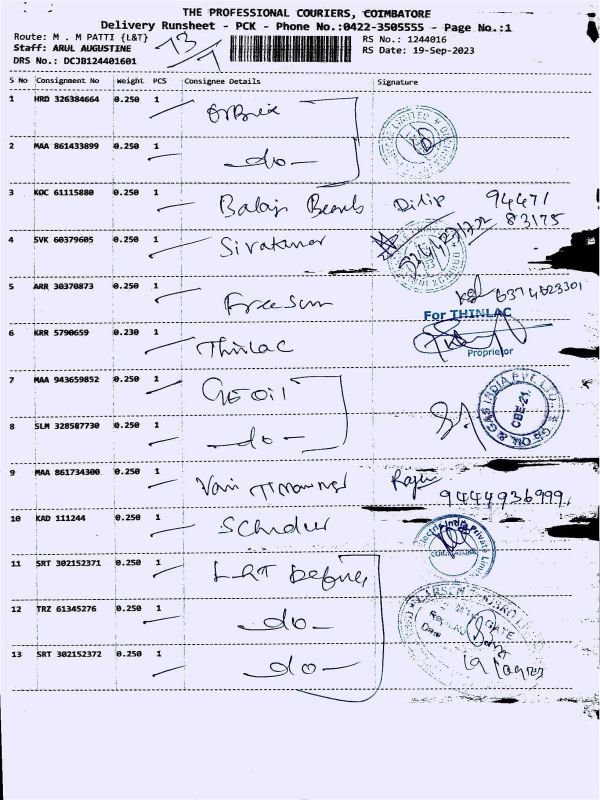 THE PROFESSIONAL COURIERS, COIMBATORE
Delivery Runsheet - PCK - Phone No.:0422-3505555 - Page No.:1
Route: M . M PATTI {L&T} RS No.: 1244016
Staff: ARUL AUGUSTINE RS Date: 19-Sep-2023
DRS No.: DCJB124401601
13/1
S No Consignment No weight PCS Consignee Details Signature
1 HRD 326384664 0.250 1
2 MAA 861433899 0.250 1 -do-
3 KOC 61115880 0.250 1 Balaji Dilip 94471
83175
4 SVK 60379605 0.250 1 Sivakumar
5 ARR 30370873 0.250 1 Freesun 6374623301
For THINLAC
6 KRR 5790659 0.230 1 Thinlac
Proprietor
7 MAA 943659852 0.250 1 GEOil
CBE-21.
8 SLM 328587730 0.250 1 -do-
9 MAA 861734300 0.250 1 Vani Raju
9444936999
10 KAD 111244 0.250 1
11 SRT 302152371 0.250 1 L&T Defence
12 TRZ 61345276 0.250 1 -do-
13 SRT 302152372 0.250 1 -do-